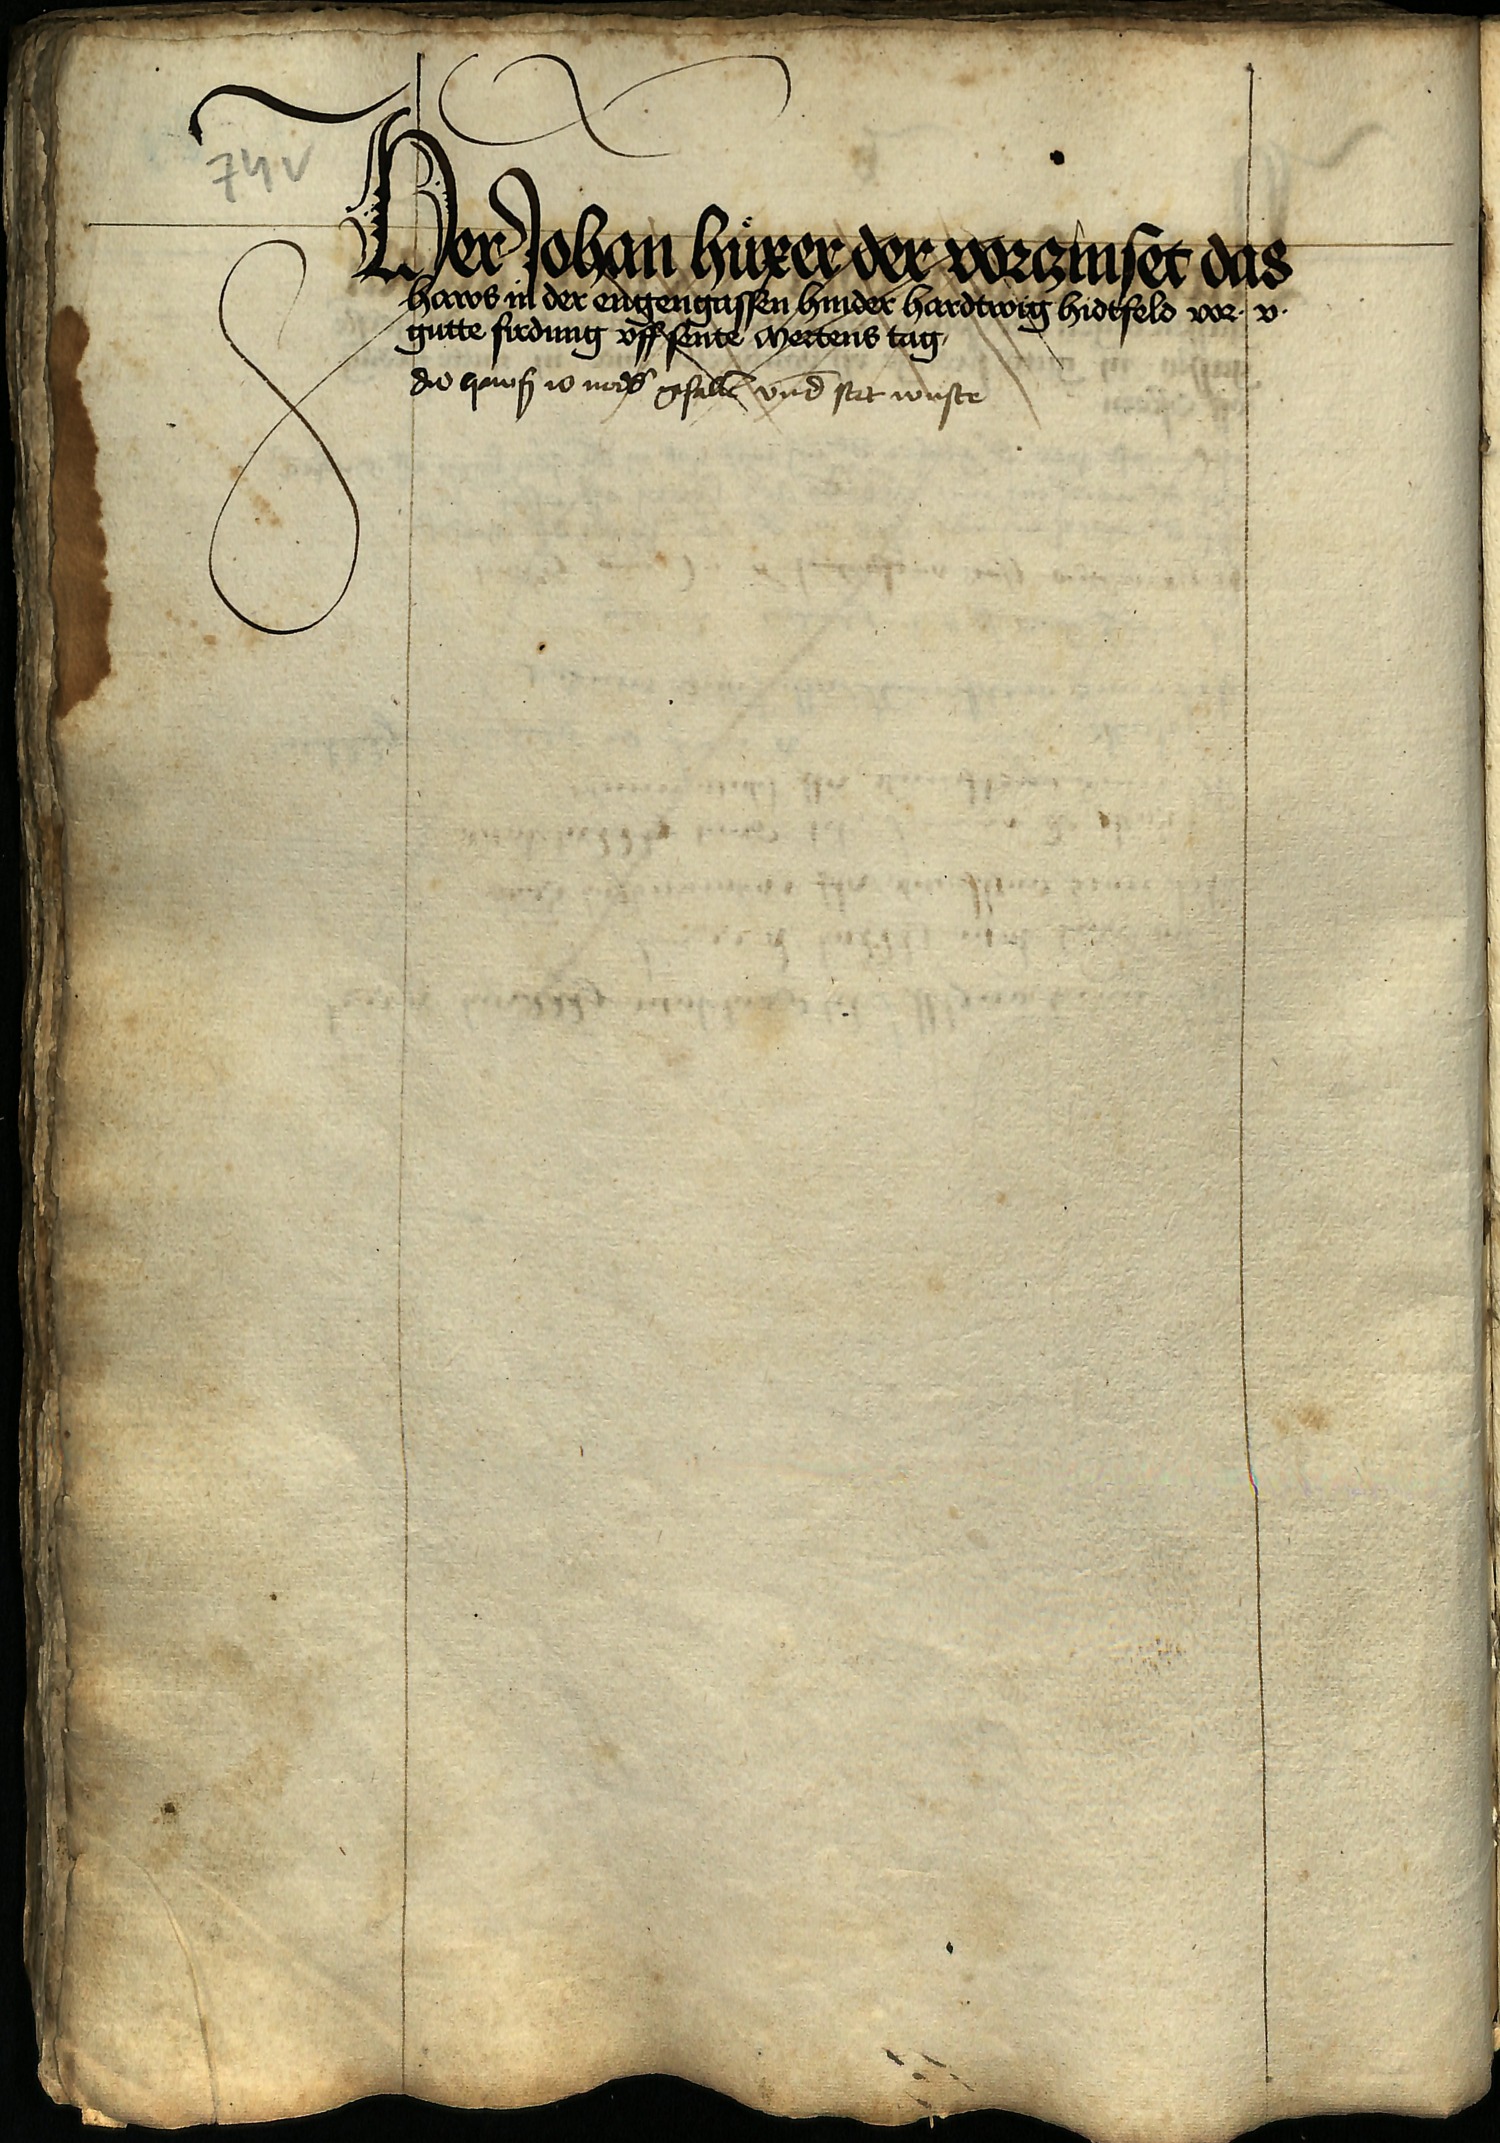 74v
Her Johan hüxer der vorczinset das
haws in der engengassen hinder hardtwig hidtfeld vor · v ·
gutte firdung vff sente Mertens tag
gefallen vnd stet wuste